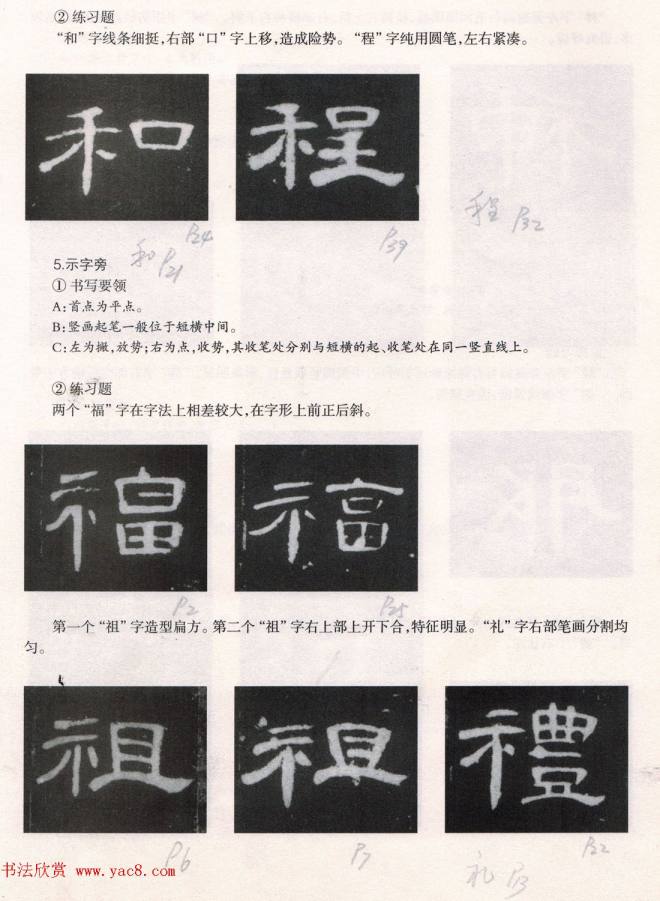 ② 练习题
“和”字线条细挺,右部“口”字上移,造成险势。“程”字纯用圆笔,左右紧凑。
和 程
P24 P39 程 P32
和 P21
5.示字旁
① 书写要领
A:首点为平点。
B:竖画起笔一般位于短横中间。
C:左为撇,放势;右为点,收势,其收笔处分别与短横的起、收笔处在同一竖直线上。
② 练习题
两个“福”字在字法上相差较大,在字形上前正后斜。
福 福
P2 P25
第一个“祖”字造型扁方。第二个“祖”字右上部上开下合,特征明显。“礼”字右部笔画分割均
匀。
祖 祖 禮
P6 P7 P22
礼 P13
书法欣赏 www.yac8.com